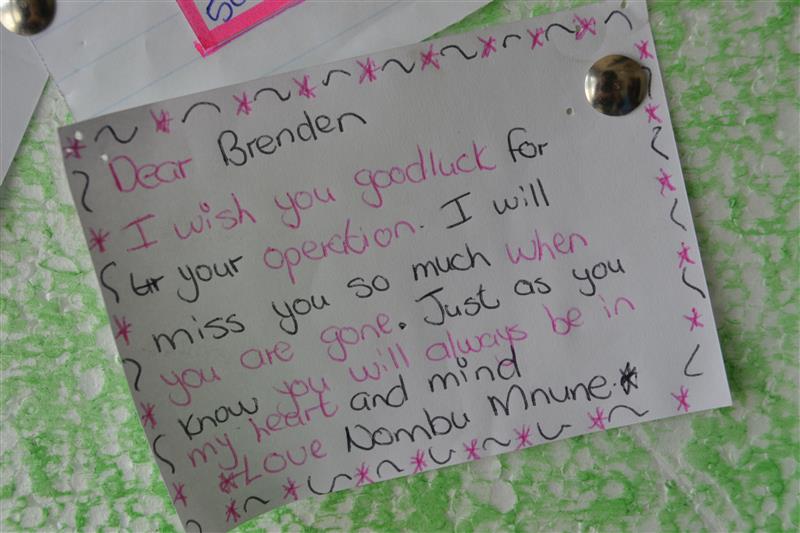 Dear Brenden
I wish you goodluck for
your operation. I will
miss you so much when
you are gone. Just as you
know you will always be in
my heart and mind
Love Nombu Mnune.